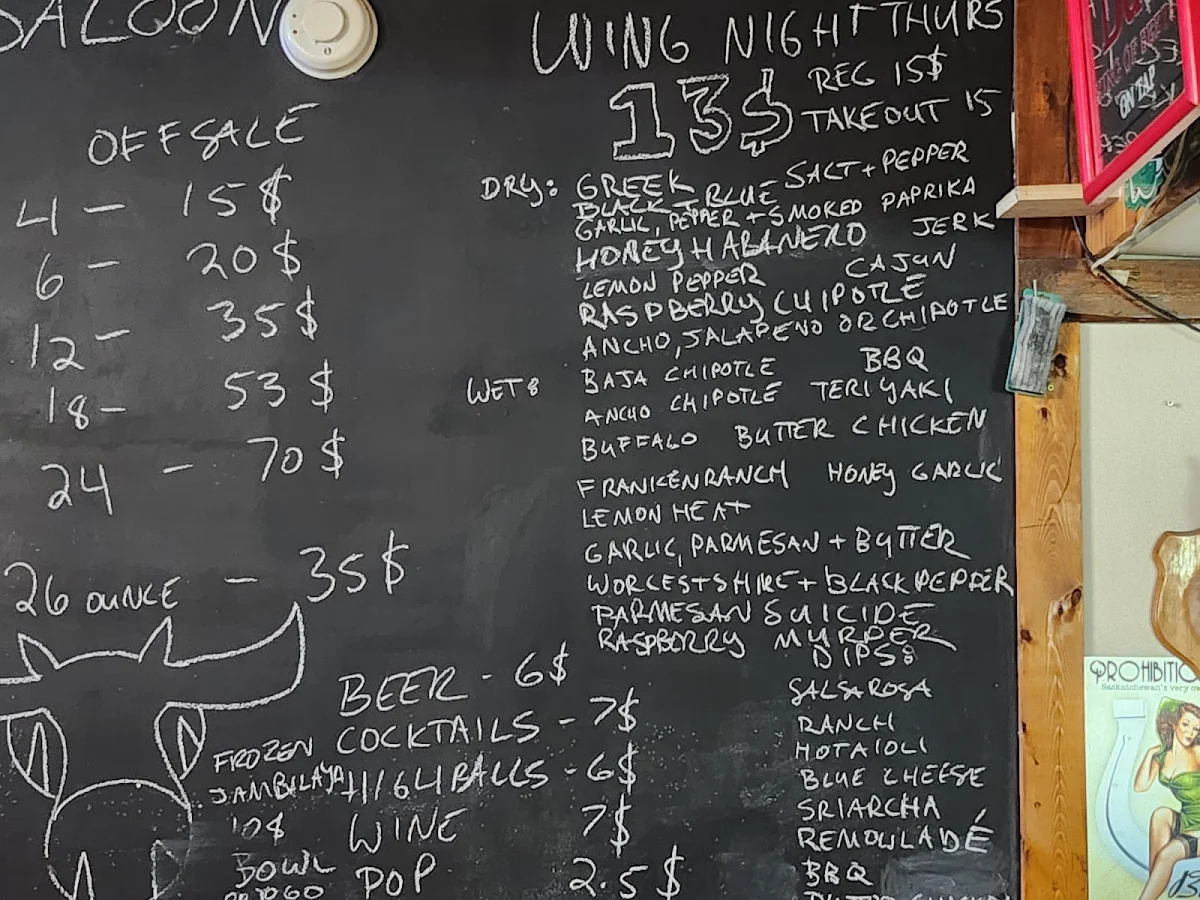 SALOON
OFFSALE
4 - 15$
6 - 20$
12 - 35$
18 - 53$
24 - 70$
26 OUNCE - 35$
BEER - 6$
COCKTAILS - 7$
HIGHBALLS - 6$
WINE 7$
POP 2.5$
FROZEN
JAMBALAYA
10$
BOWL
TO GO
WING NIGHT THURS
13$
REG 15$
TAKEOUT 15
DRY: GREEK SALT + PEPPER
BLACK + BLUE
GARLIC, PEPPER + SMOKED PAPRIKA
HONEY HABANERO JERK
LEMON PEPPER CAJUN
RASPBERRY CHIPOTLE
ANCHO, JALAPENO OR CHIPOTLE
WET: BAJA CHIPOTLE BBQ
ANCHO CHIPOTLE TERIYAKI
BUFFALO BUTTER CHICKEN
FRANKENRANCH HONEY GARLIC
LEMON HEAT
GARLIC, PARMESAN + BUTTER
WORCESTSHIRE + BLACK PEPPER
PARMESAN SUICIDE
RASPBERRY MURDER
DIPS:
SALSA ROSA
RANCH
HOT AIOLI
BLUE CHEESE
SRIARCHA
REMOULADÉ
BBQ
BUTTER CHICKEN
KING OF BEERS
ON TAP
PROHIBITIO
Saskatchewan's very o